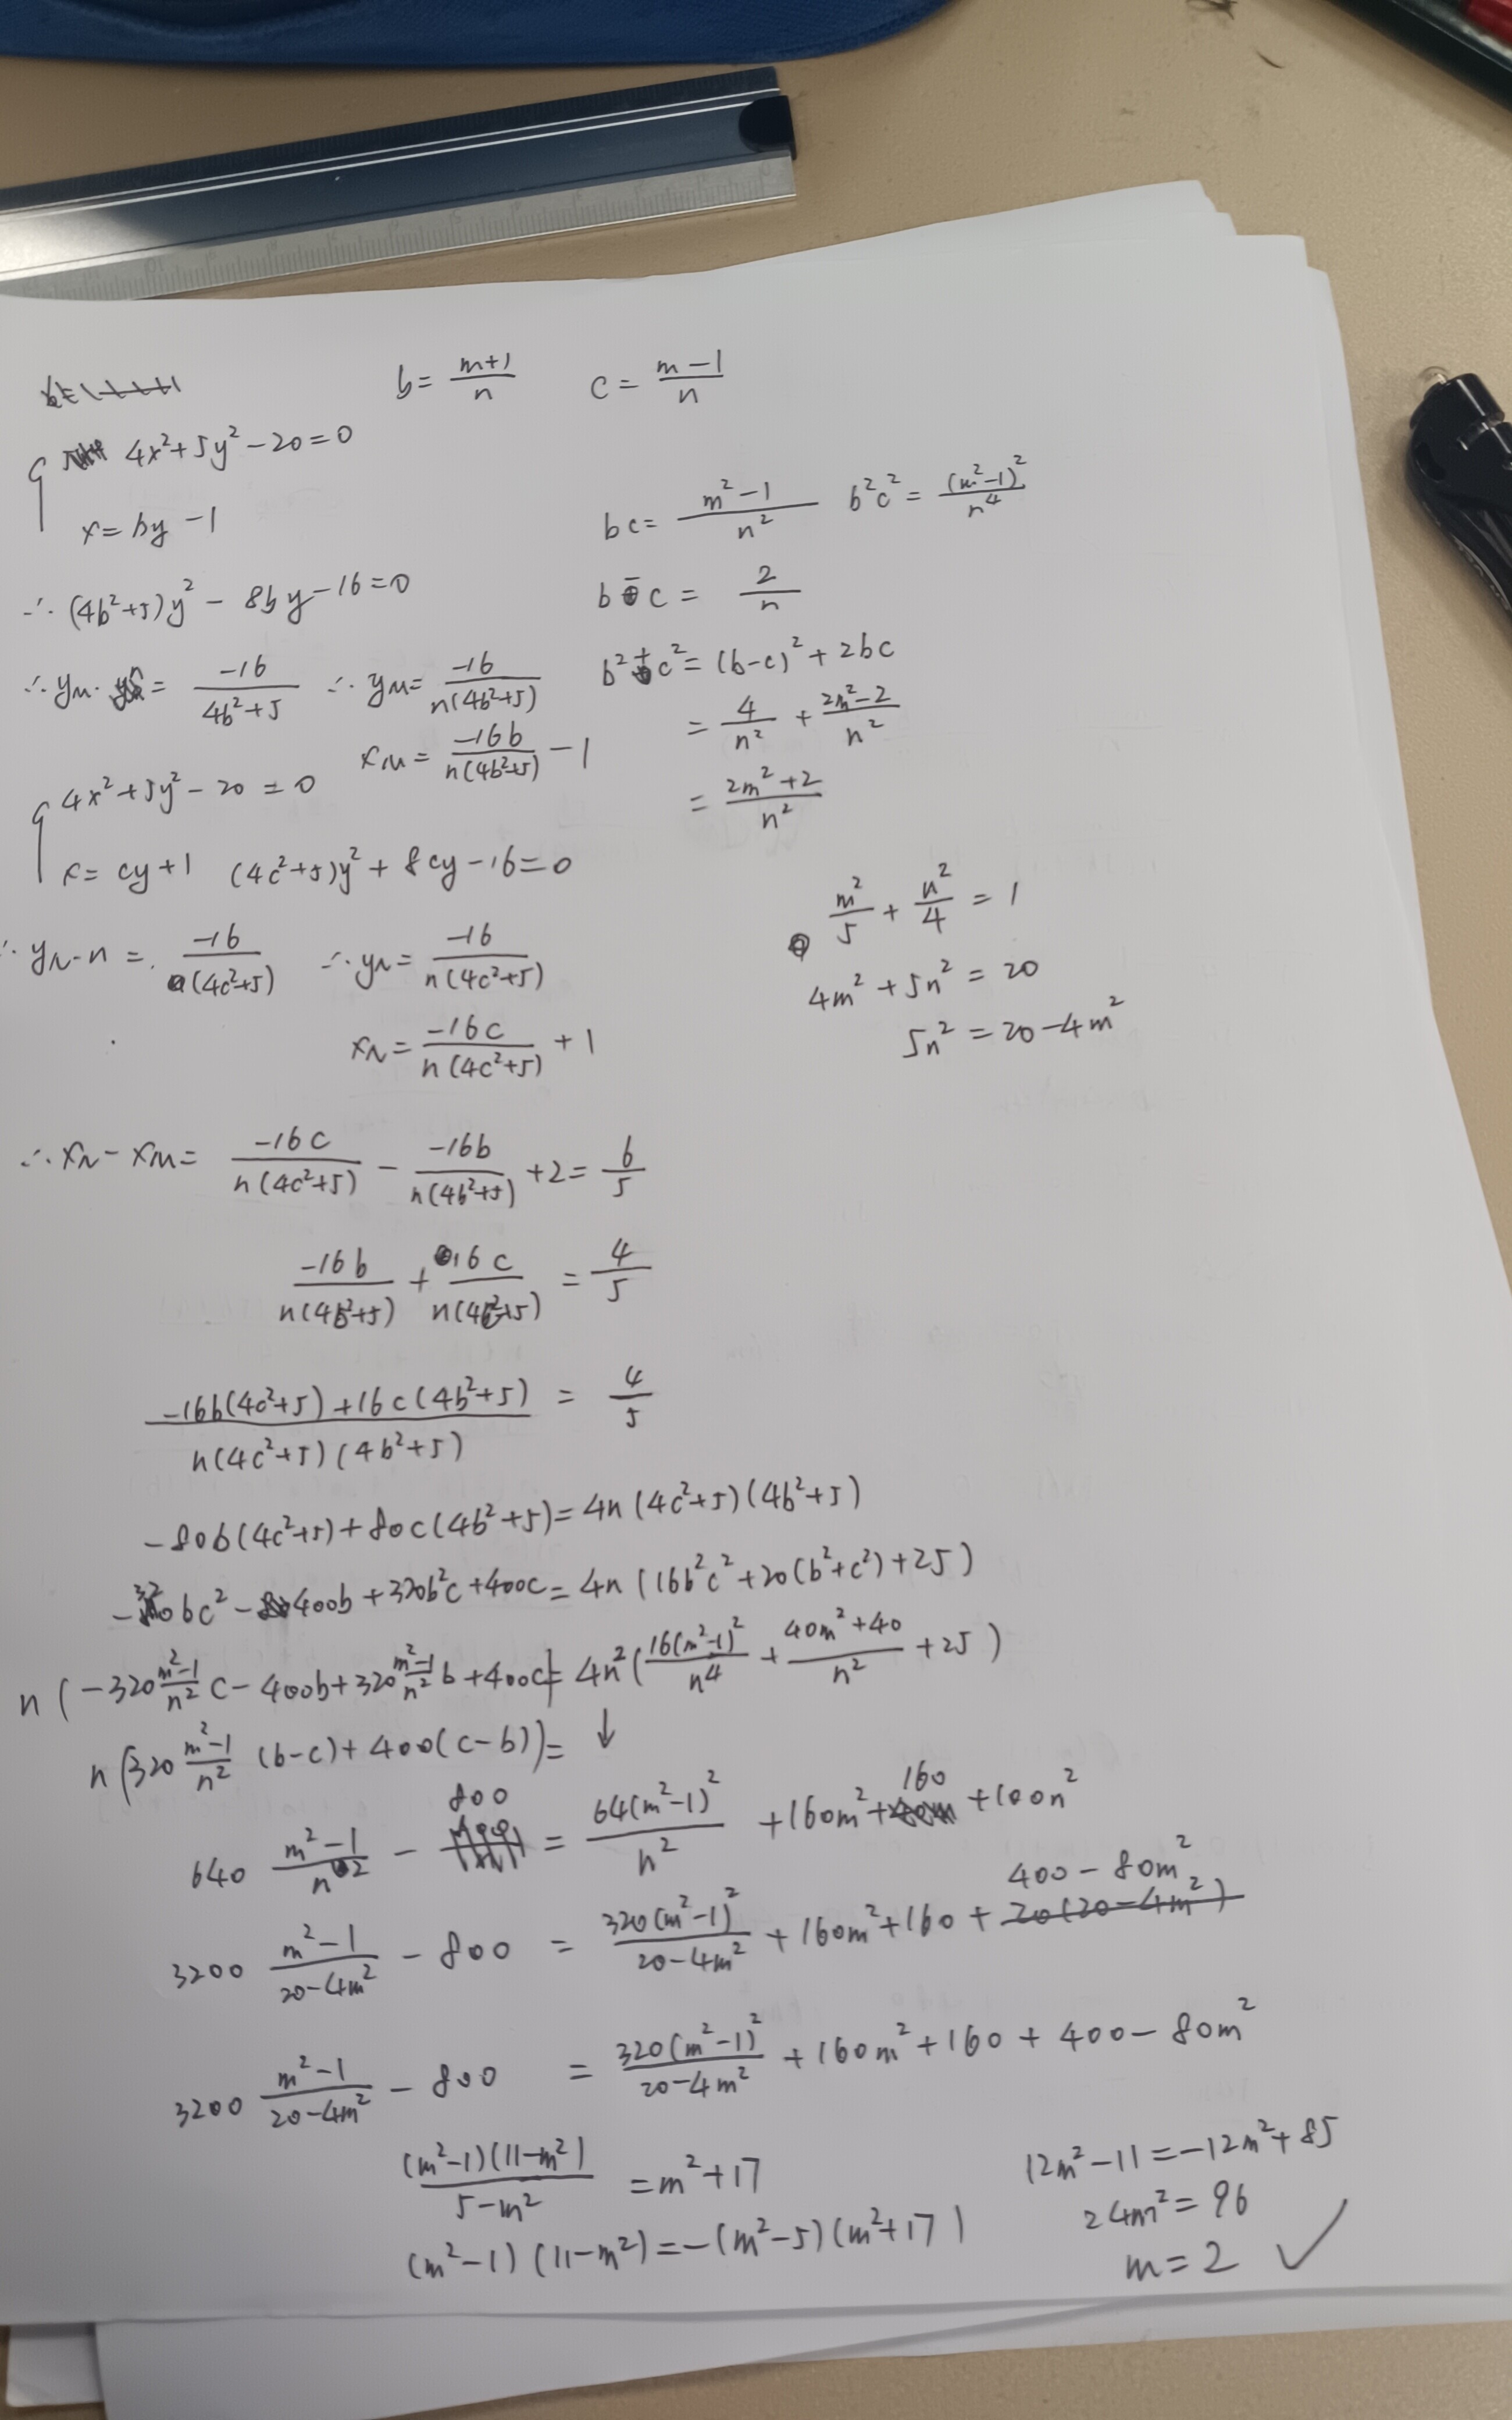 b = (m+1)/n    c = (m-1)/n
4x²+5y²-20=0
x=by-1
bc = (m²-1)/n²    b²c² = (m²-1)²/n⁴
∴ (4b²+5)y² - 8by-16=0
b-c = 2/n
∴ yM·n = -16/(4b²+5) ∴ yM = -16/(n(4b²+5))
b²+c² = (b-c)²+2bc
xM = -16b/(n(4b²+5)) - 1
= 4/n² + (2m²-2)/n²
= (2m²+2)/n²
4x²+5y²-20=0
x=cy+1 (4c²+5)y²+8cy-16=0
m²/5 + n²/4 = 1
4m²+5n²=20
5n²=20-4m²
∴ yN-n = -16/((4c²+5)) ∴ yN = -16/(n(4c²+5))
xN = -16c/(n(4c²+5)) + 1
∴ xN-xM = -16c/(n(4c²+5)) - -16b/(n(4b²+5)) +2 = 6/5
-16b/(n(4b²+5)) + 16c/(n(4c²+5)) = 4/5
(-16b(4c²+5)+16c(4b²+5))/(n(4c²+5)(4b²+5)) = 4/5
-80b(4c²+5)+80c(4b²+5)=4n(4c²+5)(4b²+5)
-320bc²-400b+320b²c+400c=4n(16b²c²+20(b²+c²)+25)
n(-320 (m²-1)/n² c-400b+320 (m²-1)/n² b+400c)=4n²(16(m²-1)²/n⁴ + (40m²+40)/n² +25)
n(320 (m²-1)/n² (b-c)+400(c-b))= ↓
640 (m²-1)/n² - 800 = 64(m²-1)²/n² +160m²+160+100n²
3200 (m²-1)/(20-4m²) - 800 = 320(m²-1)²/(20-4m²) +160m²+160+ 400-80m²
3200 (m²-1)/(20-4m²) - 800 = 320(m²-1)²/(20-4m²) +160m²+160+400-80m²
(m²-1)(11-m²)/(5-m²) = m²+17
(m²-1)(11-m²)=-(m²-5)(m²+17)
12m²-11=-12m²+85
24m²=96
m=2 ✓